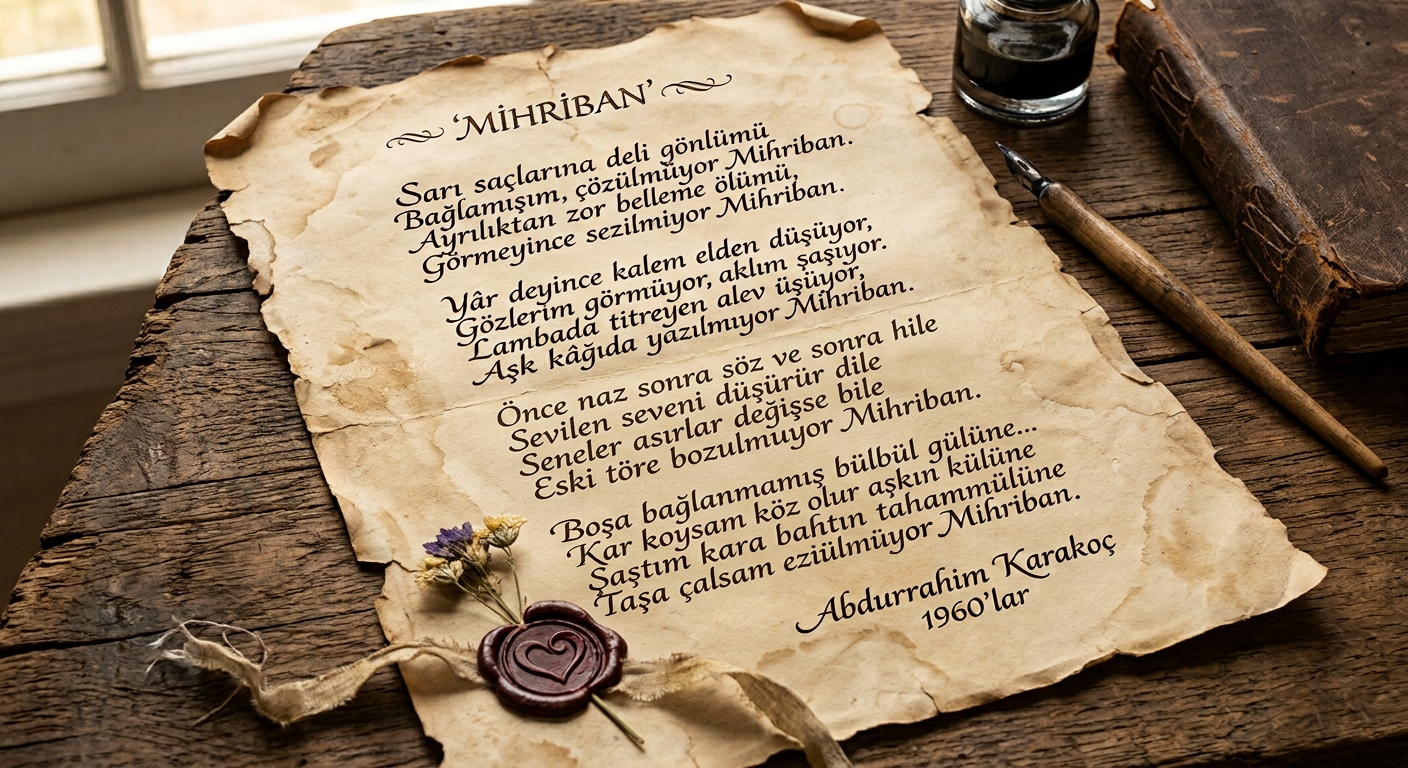 ‘MİHRİBAN’
Sarı saçlarına deli gönlümü
Bağlamışım, çözülmüyor Mihriban.
Ayrılıktan zor belleme ölümü,
Görmeyince sezilmiyor Mihriban.
Yâr deyince kalem elden düşüyor,
Gözlerim görmüyor, aklım şaşıyor.
Lambada titreyen alev üşüyor,
Aşk kâğıda yazılmıyor Mihriban.
Önce naz sonra söz ve sonra hile
Sevilen seveni düşürür dile
Seneler asırlar değişse bile
Eski töre bozulmuyor Mihriban.
Boşa bağlanmamış bülbül gülüne...
Kar koysam köz olur aşkın külüne
Şaştım kara bahtın tahammülüne
Taşa çalsam eziülmüyor Mihriban.
Abdurrahim Karakoç
1960’lar